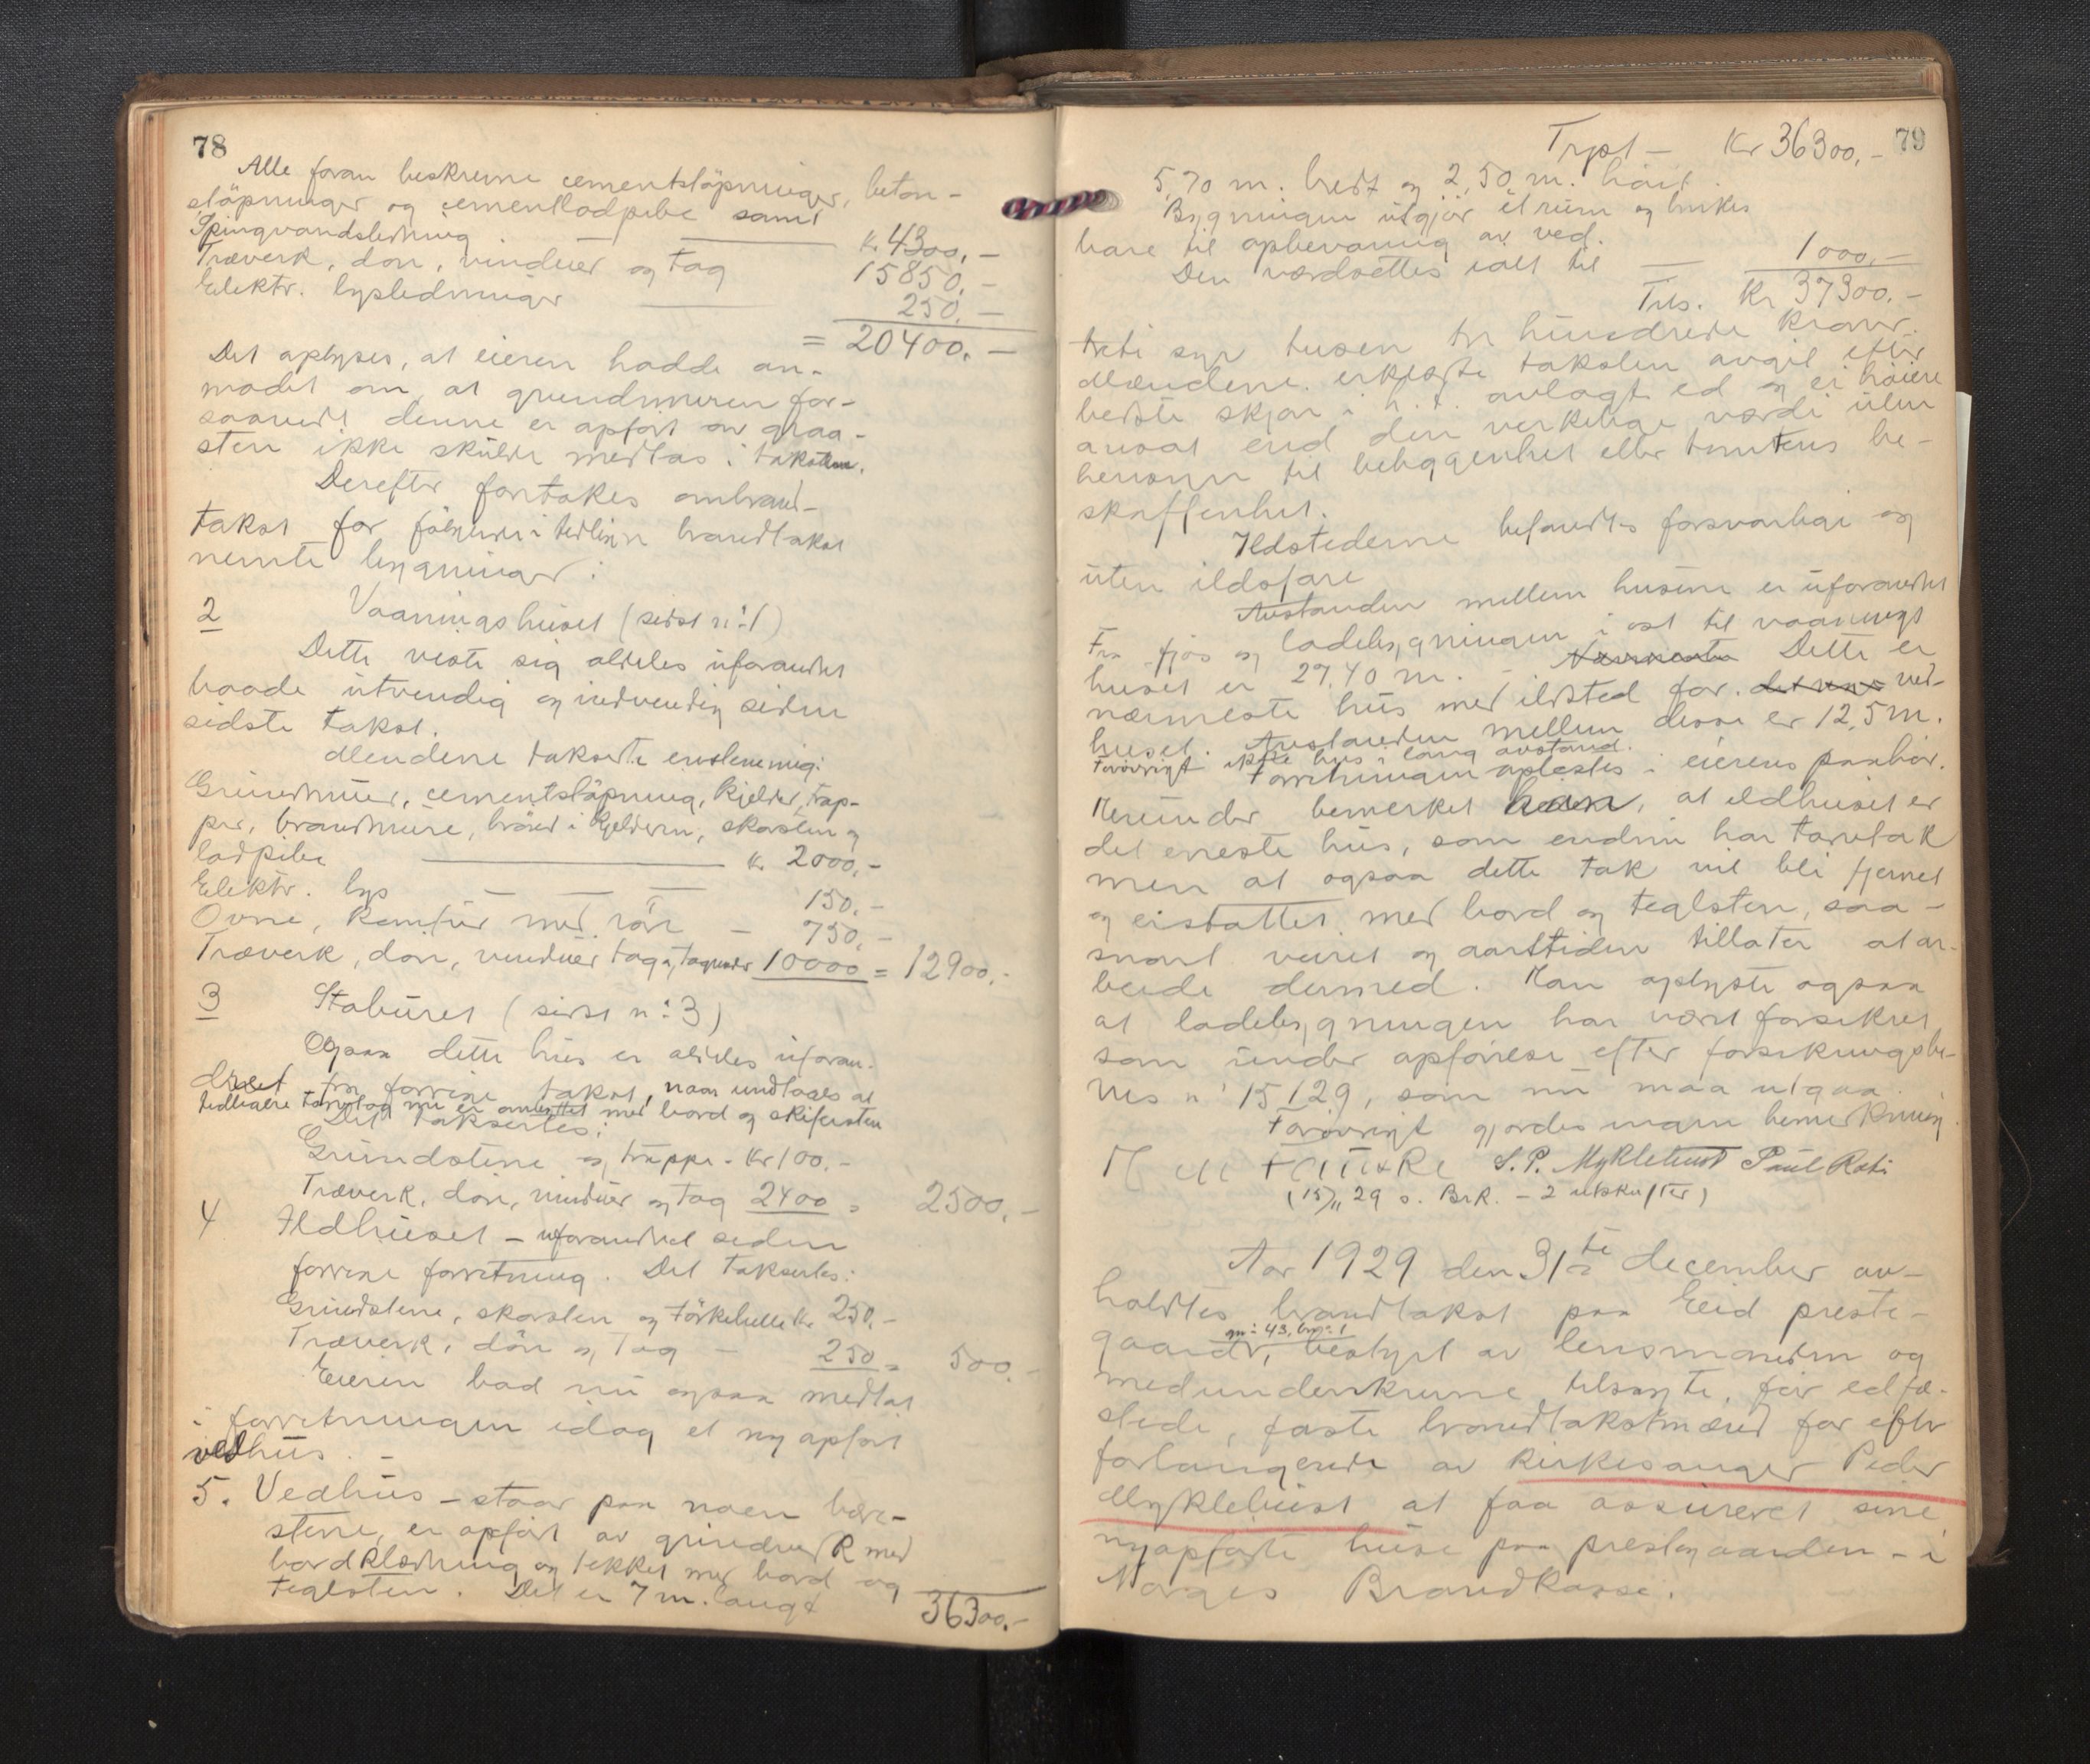 78
Alle foran beskrevne cementstøpninger, beton-
støpninger og cementlodpibe samt
Springvandsledning K. 4300,-
Træverk, dør, vinduer og tag 15850,-
Elektr. lysledninger 250,-
= 20400,-
Det oplyses, at eieren hadde an-
modet om, at grundmuren for-
saavidt denne er opført av graa-
sten ikke skulde medtas i taksten.
Derefter foretokes ombrand-
takst for følgende i tidligere brandtakst
nevnte bygninger:
2 Vaaningshuset (sidst n: 1)
Dette viste sig aldeles uforandret
baade utvendig og indvendig siden
sidste takst.
Mændene takserte enstemmig:
Grundmur, cementstøpning, kjelder, trap-
per, brandmure, hvælv i kjelderen, skorsten og
lodpibe K. 2000,-
Elektr. lys 150,-
Ovne, komfur med rør - 750,-
Træverk, dør, vinduer tag og tagrender 10000 = 12900,-
3 Staburet (sidst n: 3)
Ogsaa dette hus er aldeles uforan-
dret fra forrige takst, naar undtages at
tidligere torvtag nu er ombyttet med bord og skifersten
Det taksertes:
Grundstene og trappe - Kr 100,-
Træverk, dør, vinduer og tag 2400 = 2500,-
4 Ildhuset - uforandret siden
forrige forretning. Det taksertes:
Grundstene, skorsten og tørkehelle Kr 250,-
Træverk, dør og tag - 250 = 500,-
Eieren bad nu ogsaa medtat
i forretningen idag et ny opført
vedhus. -
5. Vedhus - staar paa noen bære-
stene, er opført av grindverk med
bordklædning og tekket med bord og
teglsten. Det er 7 m. langt
36300,-
79
Trpst - Kr 36300,-
5,70 m. bredt og 2,50 m. høit.
Bygningen utgjør et rum og brukes
bare til opbevaring av ved.
Den værdsettes ialt til 1000,-
Tils. Kr 37300,-
treti syv tusen tre hundrede kroner.
Mændene erklærte taksten avgit efter
bedste skjøn i h. t. avlagt ed og ei høiere
ansat end den virkelige værdi uten
hensyn til beliggenhet eller tomtens be-
skaffenhet.
Ildstederne befandtes forsvarlige og
uten ildsfare
Avstanden mellem husene er uforandret
Fra fjøs og ladebygningen i øst til vaanings
huset er 27,40 m. Dette er
nærmeste hus med ildsted for ved-
huset. Avstanden mellem disse er 12,5 m.
Forøvrigt ikke hus i lang avstand.
Forretningen oplæstes i eierens paahør.
Herunder bemerket han, at ildhuset er
det eneste hus, som endnu har torvtak
men at ogsaa dette tak vil bli fjernet
og erstattet med bord og teglsten, saa-
snart veiret og aarstiden tillater at ar-
beide dermed. Han oplyste ogsaa
at ladebygningen har vært forsikret
som under opførelse efter forsikringsbe-
vis n: 15129, som nu maa utgaa.
Forøvrigt gjordes ingen bemerkning
S. P. Myklebust Paul Roti
(15/11 29 s. Br.K. - 2 utskrifter)
Aar 1929 den 31te december av-
holdtes brandtakst paa Eid preste-
gaard, gn: 43, brn: 1 bestyrt av lensmanden og
medunderskrevne tilsagte, før edfæ-
stede, faste brandtakstmænd for efter
forlangende av kirkesanger Peder
Myklebust at faa assureret sine
nyopførte huse paa prestegaarden - i
Norges Brandkasse.